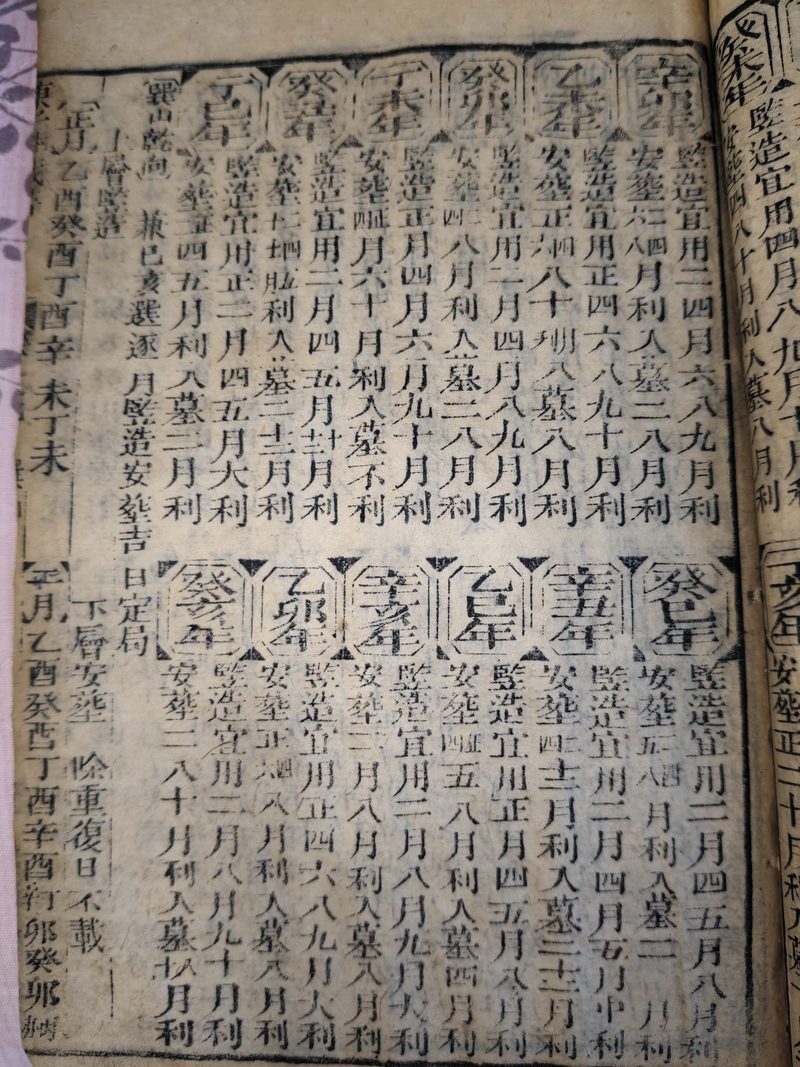 辛卯年
監造宜用二四月六八九月利
安葬六二八四月利入墓二八月利
乙未年
監造宜用正四六八九十月利
安葬正八十入墓八月利
癸卯年
監造宜用二月四月八九月利
安葬四二八月利入墓二八月利
丁未年
監造正月四月六月九十月利
安葬四正月六十月利入墓不利
癸丑年
監造宜用二月四五月十二月利
安葬入墓二十二月利
丁巳年
監造宜用正二月四五月大利
安葬四五月利入墓二月利
癸巳年
監造宜用二月四五月八月利
安葬五八月利入墓二月利
辛丑年
監造宜用二月四月五月中利
安葬十二月利入墓二十二月利
乙巳年
監造宜用正月四五月八月利
安葬四正五八月利入墓四月利
辛亥年
監造宜用二月八月九月大利
安葬二月八月利入墓八月利
乙卯年
監造宜用正四六八九月大利
安葬正八月利入墓八月利
癸亥年
監造宜用二月八月九十月利
安葬二八十月利入墓十八月利
巽山乾向 兼巳亥選逐月監造安葬吉日定局
上層監造
下層安葬 餘重復日不載
正月乙酉癸酉丁酉辛未丁未
正月乙酉癸酉丁酉辛酉卯癸卯
癸未年
監造宜用四月八九月十月利
安葬四八十月利入墓八月利
丁亥年
安葬正二十月利入墓